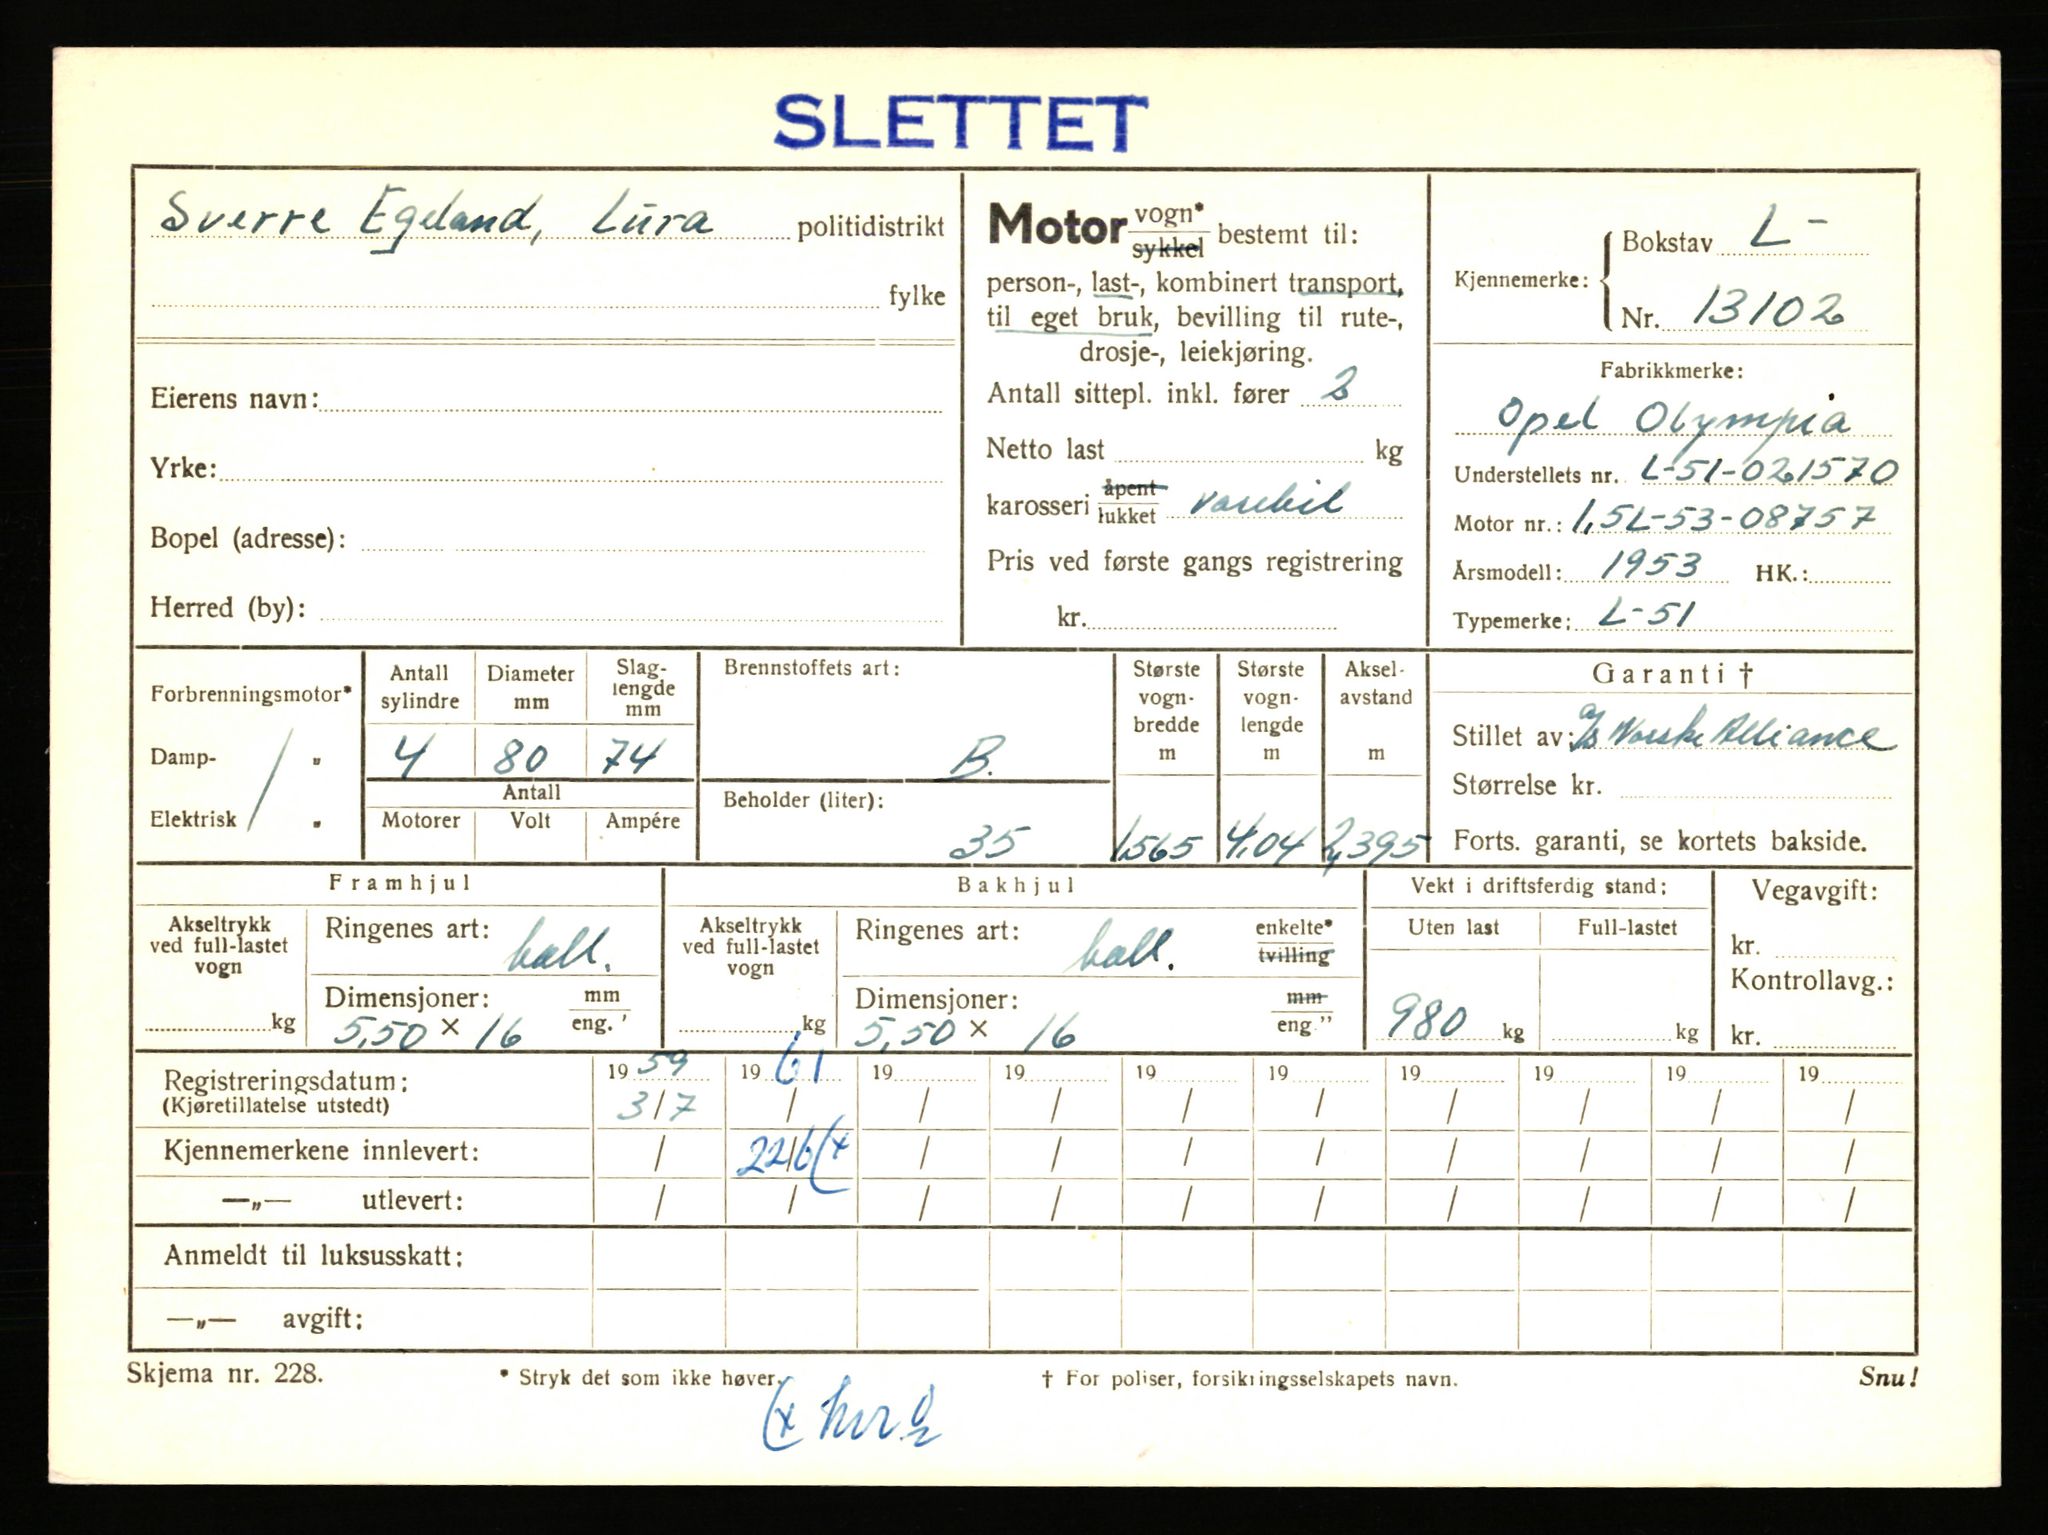 SLETTET
Sverre Egeland, Lura politidistrikt
fylke
Eierens navn:
Yrke:
Bopel (adresse):
Herred (by):
Motor vogn* sykkel bestemt til:
person-, last-, kombinert transport,
til eget bruk, bevilling til rute-,
drosje-, leiekjøring.
Antall sittepl. inkl. fører 2
Netto last kg
karosseri åpent lukket varebil
Pris ved første gangs registrering
kr.
Kjennemerke: Bokstav L-
Nr. 13102
Fabrikkmerke:
Opel Olympia
Understellets nr. L-51-021570
Motor nr.: 1,5L-53-08757
Årsmodell: 1953 HK.:
Typemerke: L-51
Forbrenningsmotor*
Damp- "
Elektrisk "
Antall sylindre 4
Diameter mm 80
Slag-lengde mm 74
Antall
Motorer Volt Ampére
Brennstoffets art:
B.
Beholder (liter):
35
Største vogn-bredde m 1,565
Største vogn-lengde m 4,04
Aksel-avstand m 2,395
Garanti †
Stillet av: a/s Norske Alliance
Størrelse kr.
Forts. garanti, se kortets bakside.
Framhjul
Akseltrykk ved full-lastet vogn
kg
Ringenes art: ball.
Dimensjoner: mm eng. '
5,50 × 16
Bakhjul
Akseltrykk ved full-lastet vogn
kg
Ringenes art: ball. enkelte* tvilling
Dimensjoner: mm eng "
5,50 × 16
Vekt i driftsferdig stand:
Uten last Full-lastet
980 kg kg
Vegavgift:
kr.
Kontrollavg.:
kr.
Registreringsdatum: 19 59 19 61 19 19 19 19 19 19 19 19
(Kjøretillatelse utstedt) 3/7 / / / / / / / / /
Kjennemerkene innlevert: / 22/6 (x / / / / / / / /
—„— utlevert: / / / / / / / / / /
Anmeldt til luksusskatt:
—„— avgift:
Skjema nr. 228.
* Stryk det som ikke høver.
† For poliser, forsikringsselskapets navn.
Snu!
(x